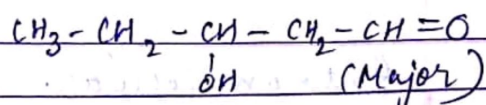 CH₃ - CH₂ - CH - CH₂ - CH = O
OH (Major)